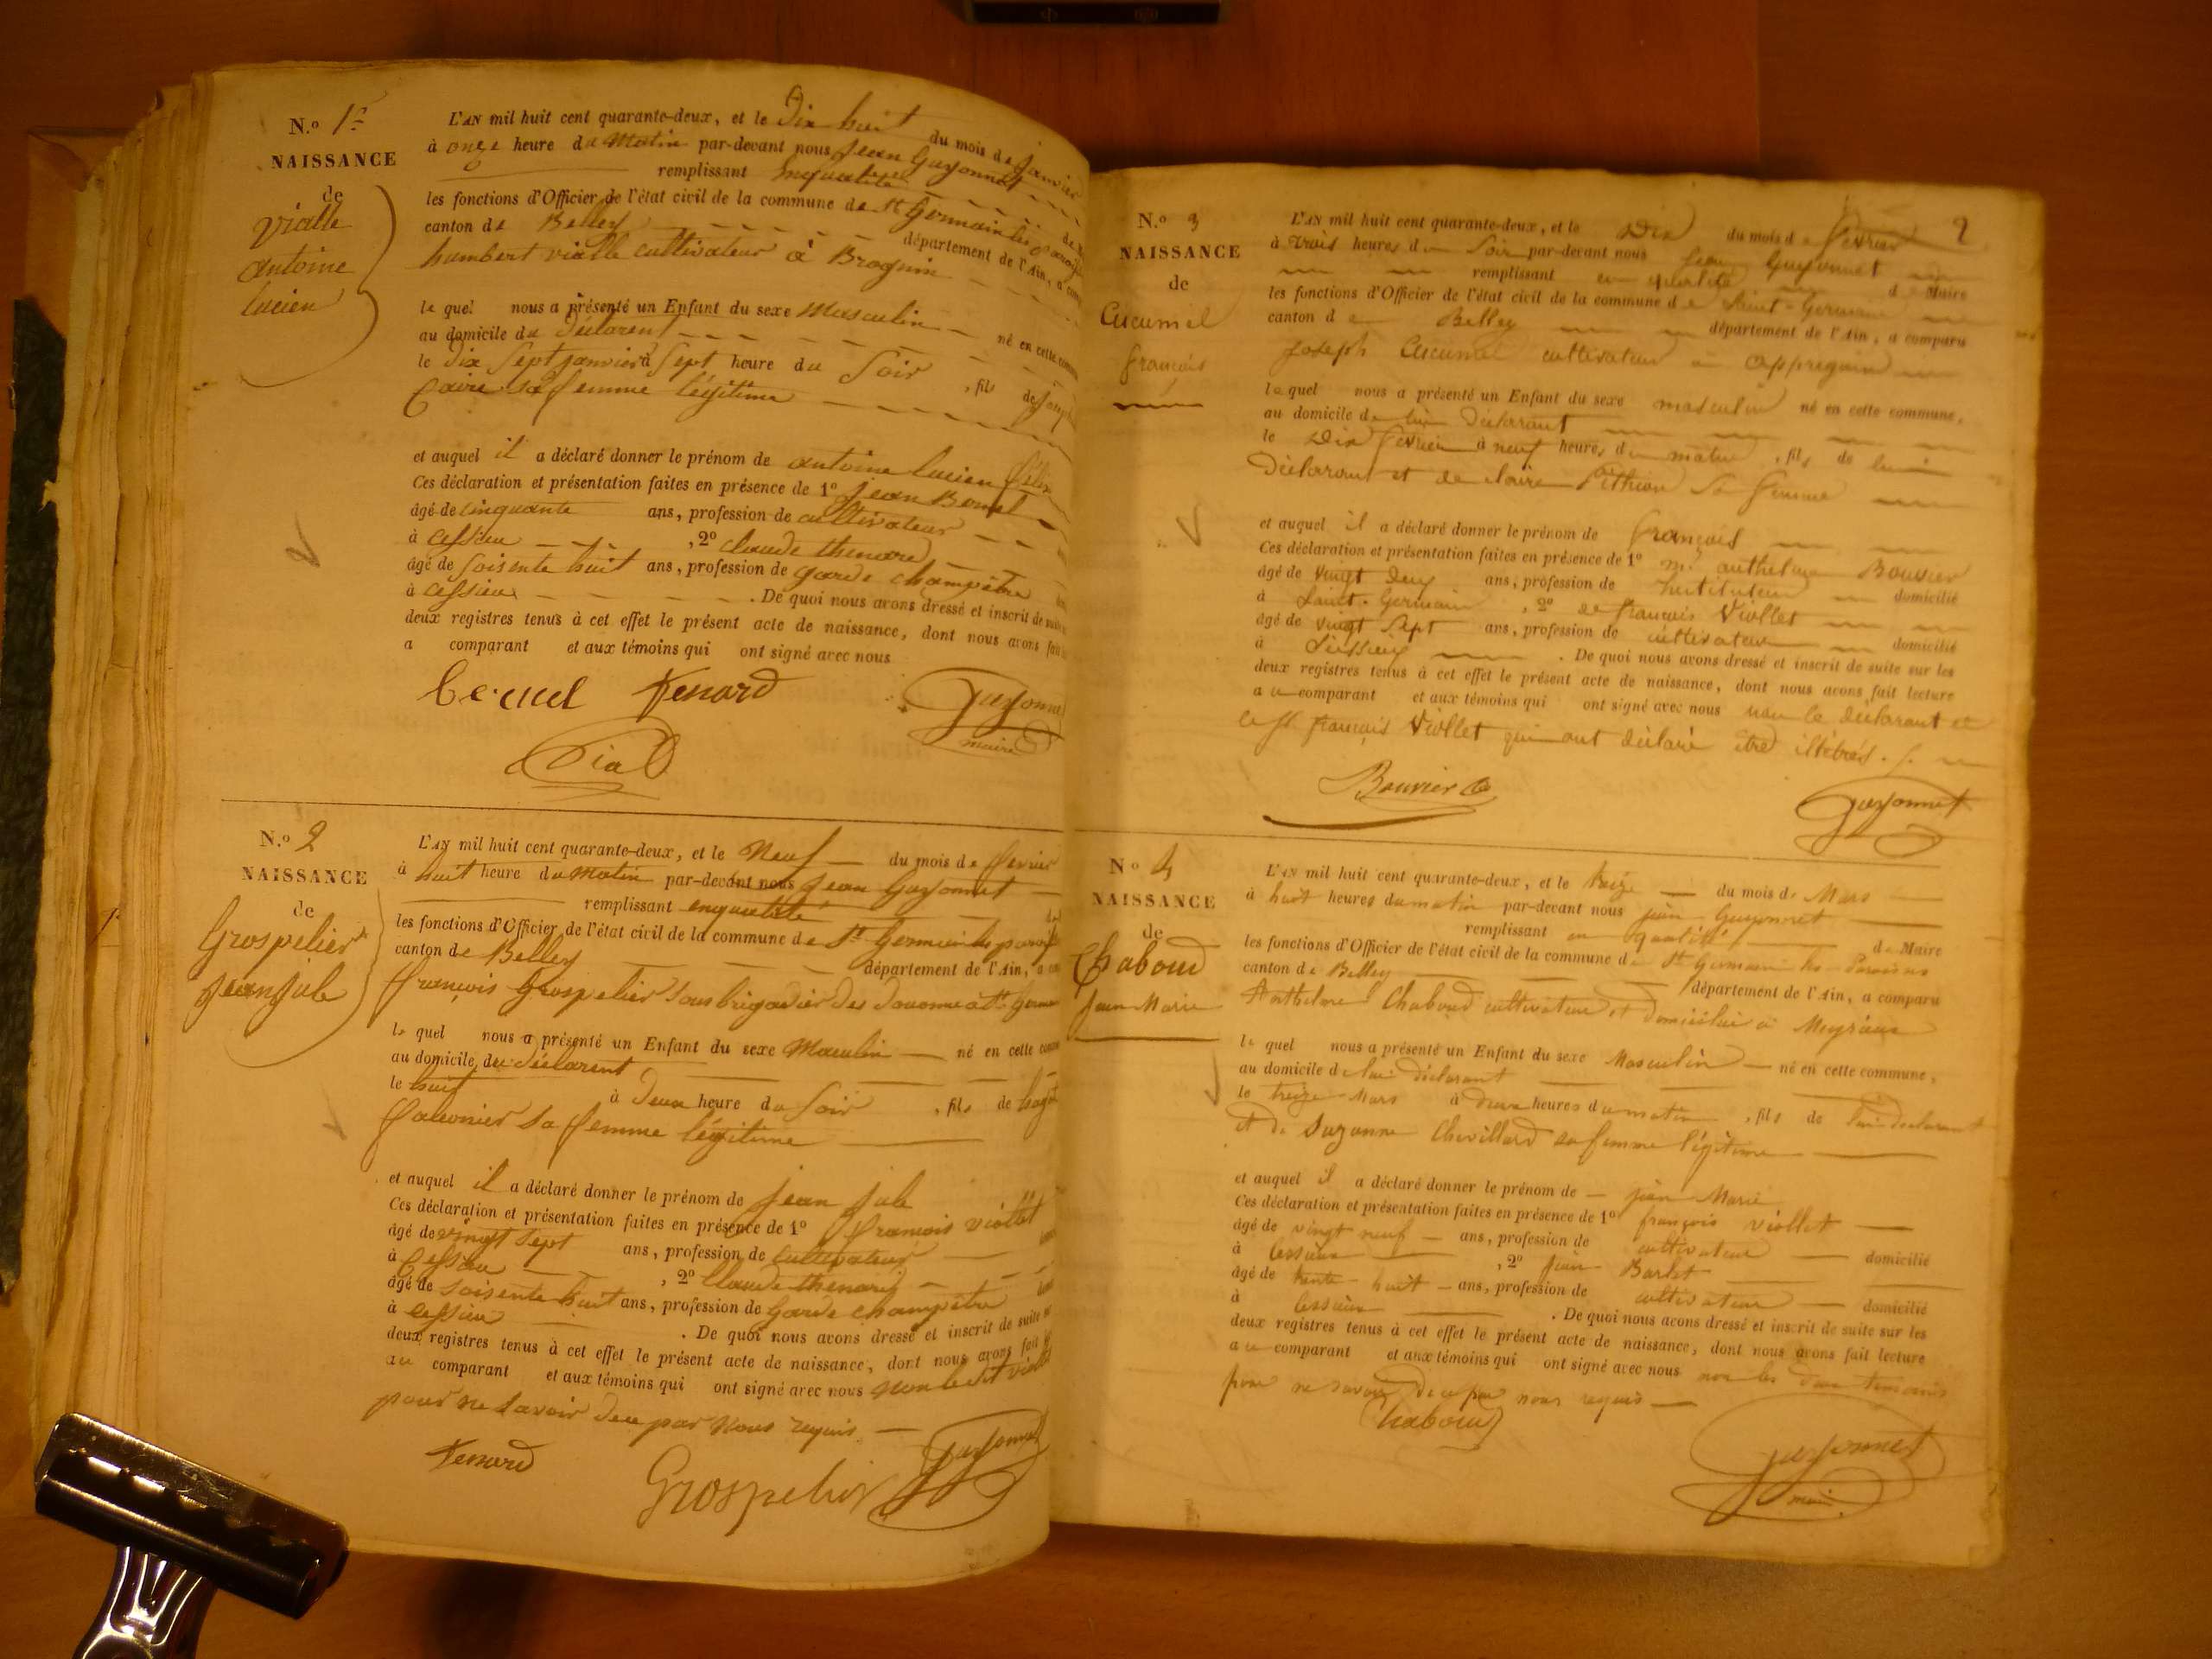 N.o 1er
NAISSANCE
de
Vialle
antoine
lucien
L'AN mil huit cent quarante-deux, et le Dix huit du mois de Janvier
à onze heure du Matin par-devant nous Jean Guyonnet
remplissant enqualité
les fonctions d'Officier de l'état civil de la commune de St Germain les
canton de Belley département de l'Ain, a
humbert vialle cultivateur à Brognin
le quel nous a présenté un Enfant du sexe Masculin né en cette
au domicile du déclarent
le Dix Sept janvier à Sept heure du Soir , fils de
sa femme légitime
et auquel il a déclaré donner le prénom de antoine lucien
Ces déclaration et présentation faites en présence de 1º Jean
âgé de cinquante ans, profession de cultivateur
à Cessieu , 2º claude thenard
âgé de soisente huit ans, profession de garde champêtre
à Cessieu . De quoi nous avons dressé et inscrit de suite
deux registres tenus à cet effet le présent acte de naissance, dont nous avons fait
a comparant et aux témoins qui ont signé avec nous
Tenard Guyonnet
maire
N.o 2
NAISSANCE
de
Grospelier
Jean Jule
L'AN mil huit cent quarante-deux, et le Neuf du mois de fevrier
à huit heure du Matin par-devant nous Jean Guyonnet
remplissant enqualité
les fonctions d'Officier de l'état civil de la commune de St Germain les
canton de Belley département de l'Ain, a
françois Grospelier sous brigadier des Douanne à St
le quel nous a présenté un Enfant du sexe Masculin né en cette
au domicile du déclarent
le huit à Deux heure du Soir , fils de
sa femme légitime
et auquel il a déclaré donner le prénom de Jean Jule
Ces déclaration et présentation faites en présence de 1º françois viollet
âgé de vingt sept ans, profession de cultivateur
à Cessieu , 2º Claude thenard
âgé de soisente huit ans, profession de garde champêtre
à Cessieu . De quoi nous avons dressé et inscrit de suite
deux registres tenus à cet effet le présent acte de naissance, dont nous avons fait
au comparant et aux témoins qui ont signé avec nous non ledit
pour ne savoir de ce par nous requis
Tenard Grospelier Guyonnet
2
N.o 3
NAISSANCE
de
Cucumel
français
L'AN mil huit cent quarante-deux, et le Dix du mois de fevrier
à trois heures du Soir par-devant nous Jean Guyonnet
remplissant en qualité de Maire
les fonctions d'Officier de l'état civil de la commune de Saint-Germain
canton de Belley département de l'Ain, a comparu
Joseph Cucumel cultivateur à Appregnin
lequel nous a présenté un Enfant du sexe masculin né en cette commune,
au domicile de lui Déclarant
le Dix fevrier à neuf heures du matin , fils de lui
Déclarant et de claire sa femme
et auquel il a déclaré donner le prénom de français
Ces déclaration et présentation faites en présence de 1º mr anthelme Bouvier
âgé de vingt Deux ans, profession de instituteur domicilié
à Saint-Germain , 2º de français Viollet
âgé de vingt Sept ans, profession de cultivateur domicilié
à . De quoi nous avons dressé et inscrit de suite sur les
deux registres tenus à cet effet le présent acte de naissance, dont nous avons fait lecture
au comparant et aux témoins qui ont signé avec nous non le déclarant et
français Viollet qui ont déclaré être illétrés.
Bouvier Guyonnet
N.o 4
NAISSANCE
de
Chaboud
Jean-Marie
L'AN mil huit cent quarante-deux, et le treize du mois de Mars
à huit heures du matin par-devant nous jean Guyonnet
remplissant en qualité de Maire
les fonctions d'Officier de l'état civil de la commune de St Germain les Paroisses
canton de Belley département de l'Ain, a comparu
Anthelme Chaboud cultivateur et domicilié à
le quel nous a présenté un Enfant du sexe Masculin né en cette commune,
au domicile de lui déclarant
le treize Mars à deux heures du matin , fils de lui déclarant
et de Suzanne Chevillard sa femme légitime
et auquel il a déclaré donner le prénom de jean Marie
Ces déclaration et présentation faites en présence de 1º françois viollet
âgé de vingt neuf ans, profession de cultivateur domicilié
à Cessieux , 2º jean Barlet
âgé de trente huit ans, profession de cultivateur domicilié
à Cessieux . De quoi nous avons dressé et inscrit de suite sur les
deux registres tenus à cet effet le présent acte de naissance, dont nous avons fait lecture
au comparant et aux témoins qui ont signé avec nous non les deux temoins
pour ne savoir de ce par nous requis
Chaboud
Guyonnet
maire